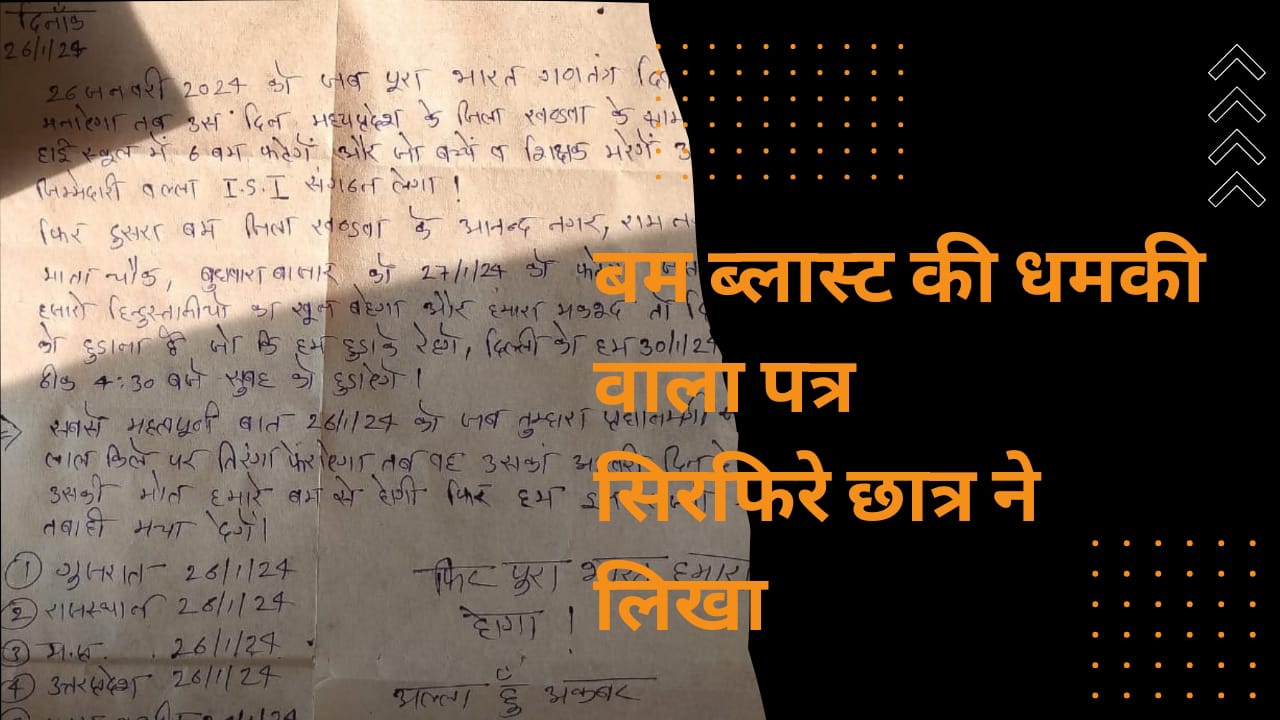 दिनाँक
26/1/24
26 जनवरी 2024 को जब पूरा भारत गणतंत्र
मनाएगा तब उस दिन मध्यप्रदेश के जिला खण्डवा के
हाई स्कूल में 6 बम फटेगें और जो बच्चें व शिक्षक मरेगें
जिम्मेदारी I.S.I संगठन लेगा !
फिर दुसरा बम जिला खण्डवा के आनन्द नगर, राम
माता चौक, बुधवारा बाजार को 27/1/24 को
हजारो हिन्दुस्तानीयो का खून बहेगा और हमारा मकशद तो
को छुडाना है जो कि हम छुडाके रहेगे, दिल्ली को हम 30/1/24
ठीक 4:30 बजे सुबह को छुडाएगे !
सबसे महत्वपूर्ण बात 26/1/24 को जब तुम्हारा प्रधानमंत्री
लाल किले पर तिरंगा फेराएगा तब वह उसका दिन
उसकी मोत हमारे बम से होगी फिर हम
तबाही मचा देगें।
① गुजरात - 26/1/24
② राजस्थान 26/1/24
③ म.प्र. 26/1/24
④ उत्तरप्रदेश 26/1/24
फिर पुरा भारत हमारा
होगा !
अल्ला हुँ अकबर
बम ब्लास्ट की धमकी
वाला पत्र
सिरफिरे छात्र ने
लिखा